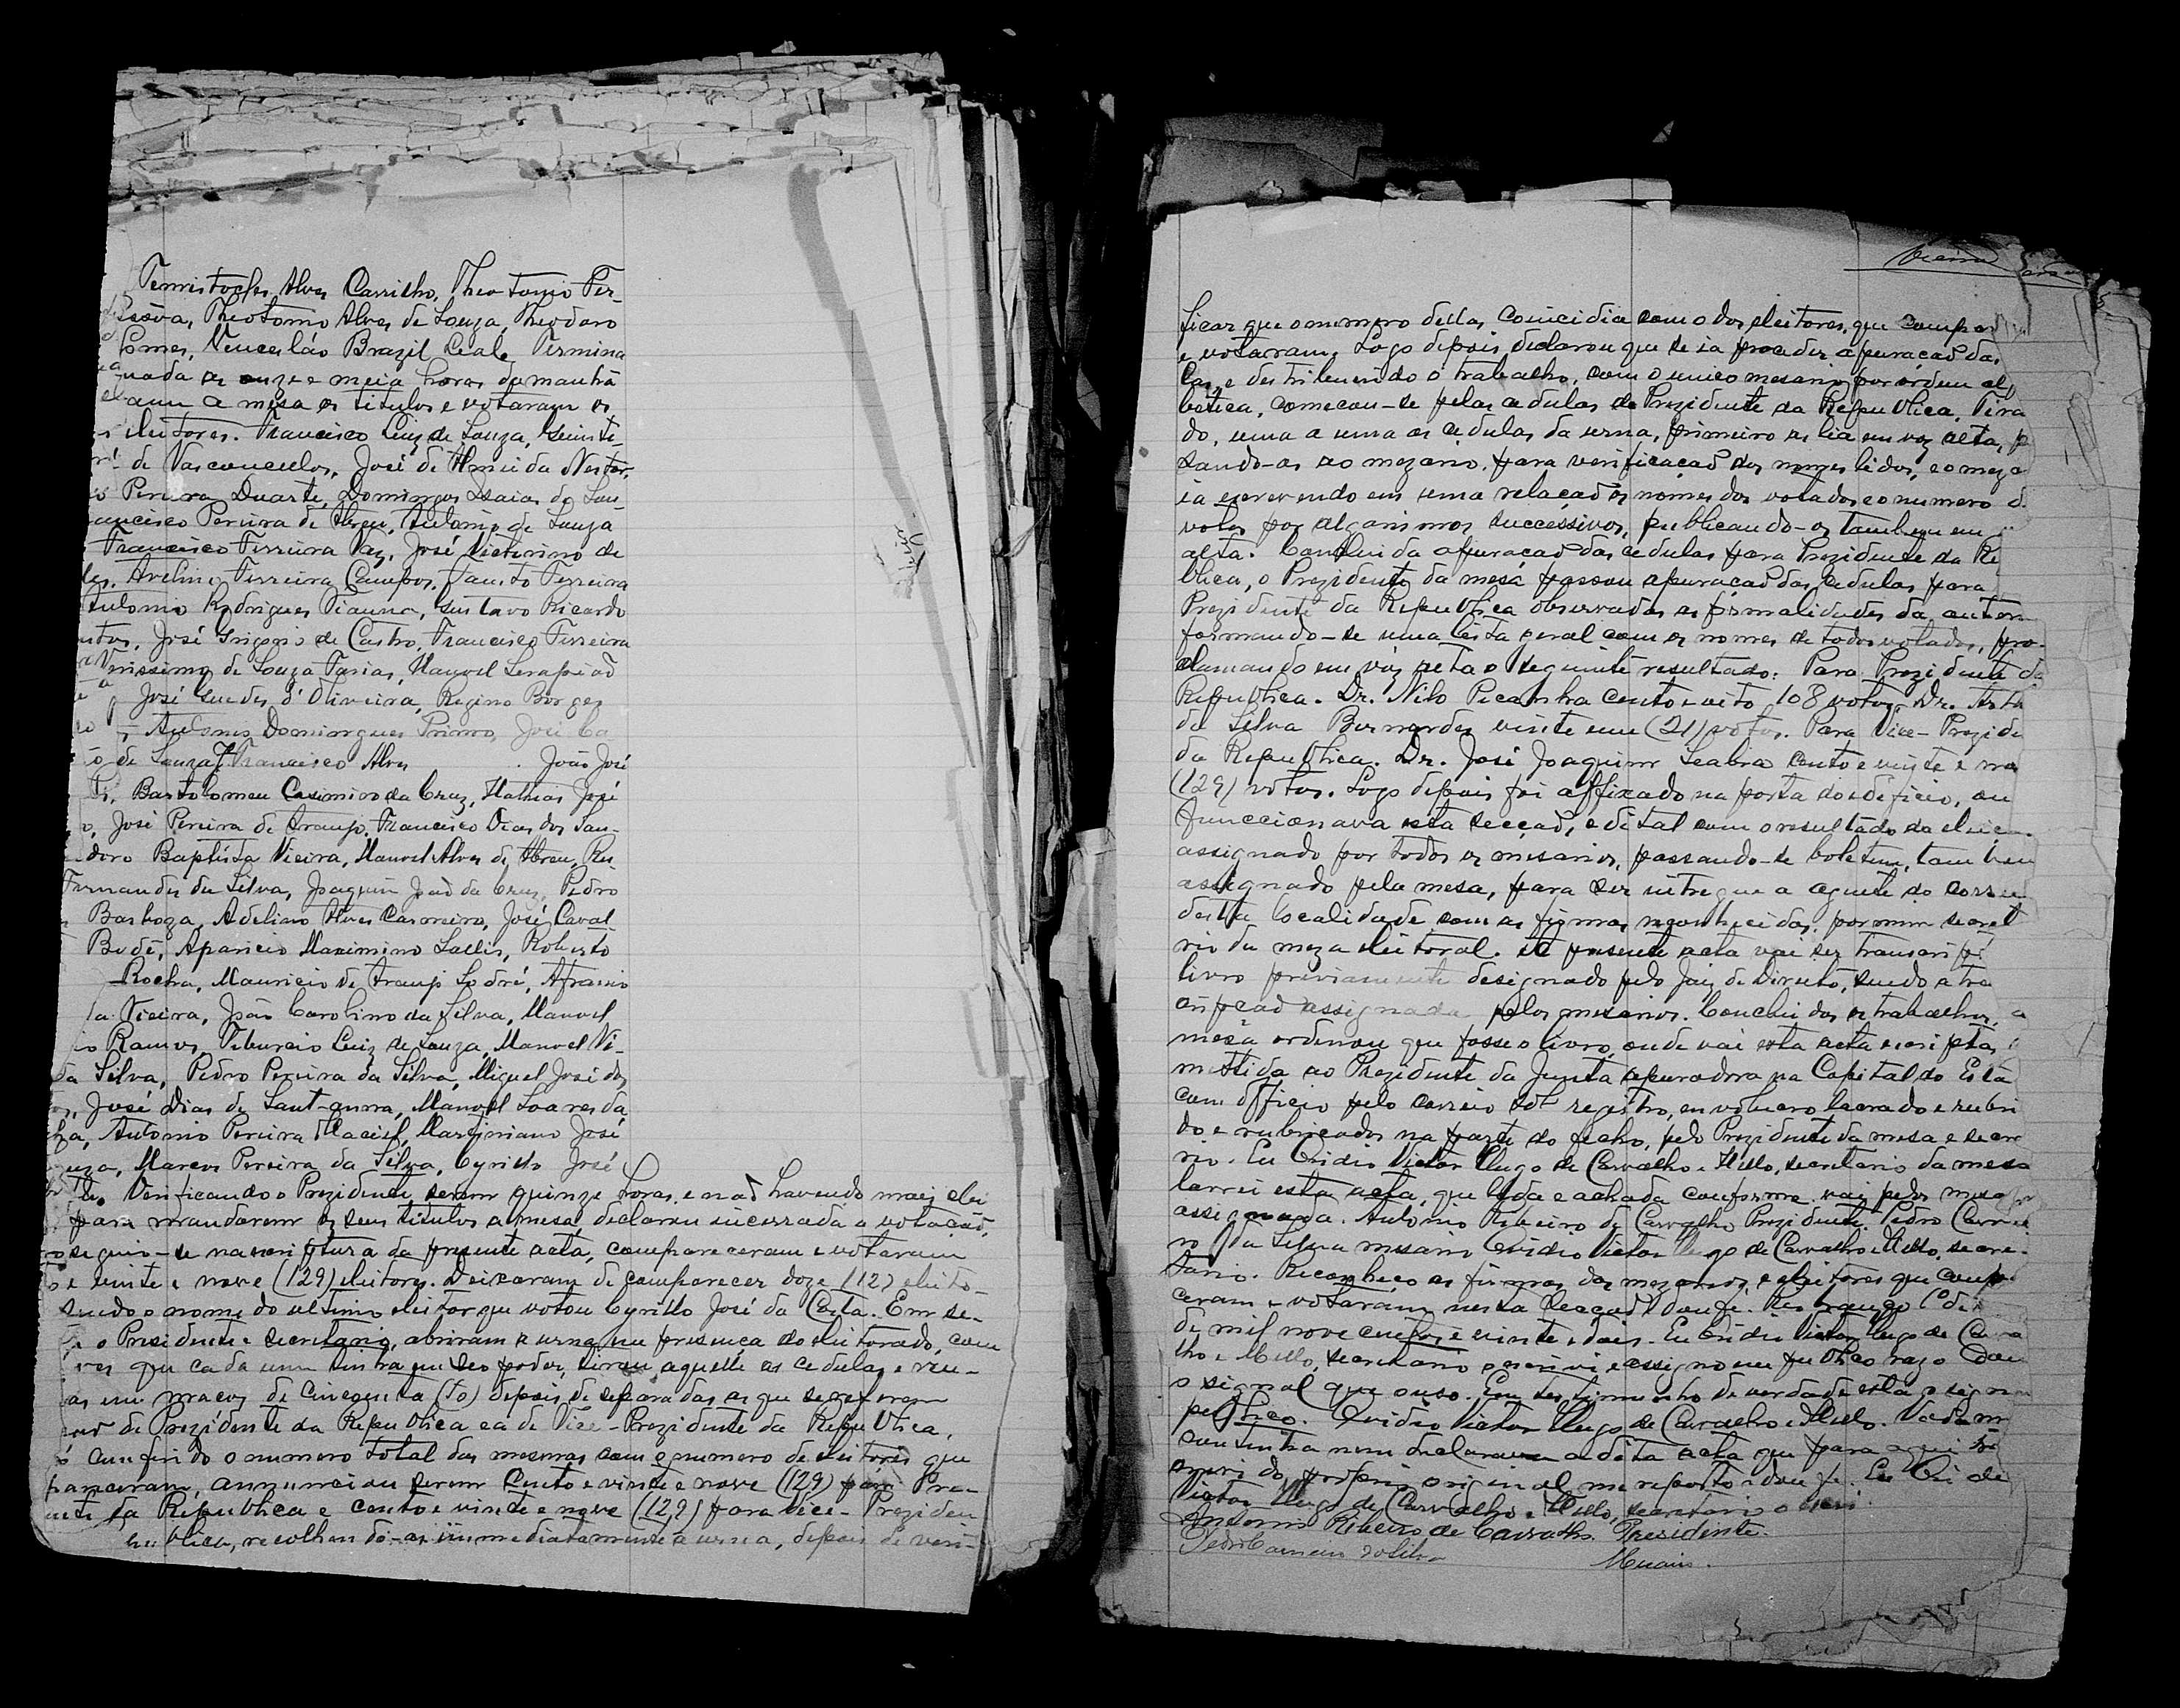 Temistocles Alves Carrilho, Theotonio Fer-
Theotonio Alves de Souza, Theodoro
Gomes, Vencesláo Brazil Leal. Termina
as onze e meia horas da manhã
a mesa os titulos e votaram os
eleitores. Francisco Luiz de Souza,
de Vasconcellos, José de Almeida Nestor,
Pereira Duarte, Domingos Isaias de Sou-
Francisco Pereira de Abreu, Antonio de Souza
Francisco Ferreira Vaz, José Victorino de
Avelino Ferreira Campos, Fausto Ferreira
Antonio Rodrigues Vianna, Gustavo Ricardo
José Grigorio de Castro, Francisco Ferreira
Virissimo de Souza Farias, Manoel Serapeão
José Guedes d'Oliveira, Regino Borges
Antonio Domingues Primo, José Ca
de Souza, Francisco Alves João José
Bartolomeu Casimiro da Cruz, Mathias José
José Pereira de Araujo, Francisco Dias dos San-
doro Baptista Vieira, Manoel Alves de Abreu,
Fernandes da Silva, Joaquim José da Cruz, Pedro
Barboza, Adeliano Alves Carneiro, José Caval
Budé, Aparicio Maximino Sallis, Roberto
Rocha, Mauricio de Araujo Sodré, Afranio
Vieira, João Carolino da Silva, Manoel
Ramos, Tiburcio Luiz de Souza, Manoel Vi-
da Silva, Pedro Pereira da Silva, Miguel José dos
José Dias de Sant-anna, Manoel Soares da
Antonio Pereira Maciel, Martiniano José
Marcos Pereira da Silva, Cyrillo José
Verificando o Prezidente serem quinze horas, e não havendo mais elei
para mandarem os seus titulos a mesa, declarou encerrada a votação,
seguio-se na escriptura da presente acta, compareceram e votaram
e vinte e nove (129) eleitores. Deixaram de comparecer doze (12) eleito-
sendo o nome do ultimo eleitor que votou Cyrillo José da Costa. Em se-
o Presidente e secretario, abriram a urna na presença do eleitorado, com
ves que cada um tinha em seo poder, tirou aquelle as cedulas e reu-
as em maços de cincoenta (50) depois de separadas as que se referem
de Prezidente da Republica e a de Vice-Prezidente da Republica,
conferido o numero total das mesmas com o numero de eleitores que
pareceram, annunciou serem cento e vinte e nove (129) para Pre-
da Republica e cento e vinte e nove (129) para Vice-Preziden
recolhendo-as immediatamente a urna, depois de veri-
ficar que o numero dellas coincidia com o dos eleitores, que compar
e votaram. Logo depois declarou que se ia proceder apuração das
e destribuindo o trabalho, com o unico mesario por ordem al
betica, começou-se pelas cedulas de Prezidente da Republica. Tira
do, uma a uma as cedulas da urna, primeiro as lia em voz alta, p
sando-as ao mezario, para verificação dos nomes lidos, e o meza
ia escrevendo em uma relação os nomes dos votados e o numero d
votos por algarismos successivos, publicando-os tambem em
alta. Concluida apuração das cedulas para Prezidente da Re
blica, o Prezidente da mesa passou apuração das cedulas para
Prezidente da Republica observadas as formalidades da
formando-se uma lista geral com os nomes de todos votados, pro-
clamando em vóz alta o seguinte resultado: Para Prezidente da
Republica. Dr. Nilo Peçanha cento e oito 108 votos. Dr. Artu
da Silva Bernardes vinte e um (21) votos. Para Vice-Prezide
da Republica. Dr. José Joaquim Seabra cento e vinte e no
(129) votos. Logo depois foi affixado na porta do edeficio, on
funccionava esta secção, edital com o resultado da
assignado por todos os mesarios, passando-se boletim, tambem
assignado pela mesa, para ser entregue a agente do
desta localidade com as firmas reconhecidas por mim secret
rio da meza eleitoral. A presente acta vai ser transcrip
livro previamente designado pelo Juiz de Direito, sendo a tra
cripção assignada pelos mesarios. Concluidos os trabalhos, a
mesa ordenou que fosse o livro, onde vai esta acta escripta,
mettida ao Prezidente da Junta apuradora na Capital do Esta
com officio pelo correio sob registro, envolucro lacrado e rubri
do e rubricados na parte do fecho, pelo Prezidente da mesa e secre
rio. Eu Ovidio Victor Hugo de Carvalho e Mello, secretario da mesa
lavrei esta acta, que lida e achada conforme vai pelos mesa
assignada. Antonio Ribeiro de Carvalho Prezidente. Pedro Carnei
ro da Silva mesario Ovidio Victor Hugo de Carvalho e Mello, secre-
tario. Reconheço as firmas dos mezarios, e eleitores que comp
ceram e votaram nesta secção dou fé.
de mil nove centos e vinte e dois. Eu Ovidio Victor Hugo de Carva
lho e Mello, secretario o escrivi e assigno em publico razo
o signal que o uso. Em testimunho de verdade esta o sign
publico. Ovidio Victor Hugo de Carvalho e Mello.
continha nem declarava a dita acta que para aqui
do proprio original me reporto e dou fé. Eu Ovide
Victor Hugo de Carvalho e Mello, secretario o
Antonio Ribeiro de Carvalho. Presidente.
Pedro Carneiro da Silva